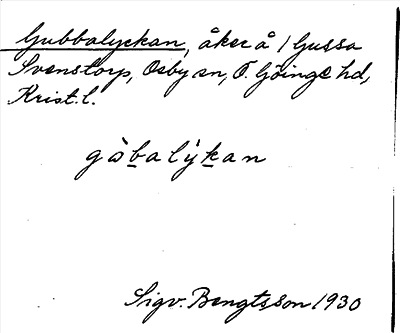 Gubbalyckan, åker å 1 Gussa
Svenstorp, Osby sn, Ö. Göinge hd,
Krist. l.
gàbalýkan
Sigv. Bengtsson 1930